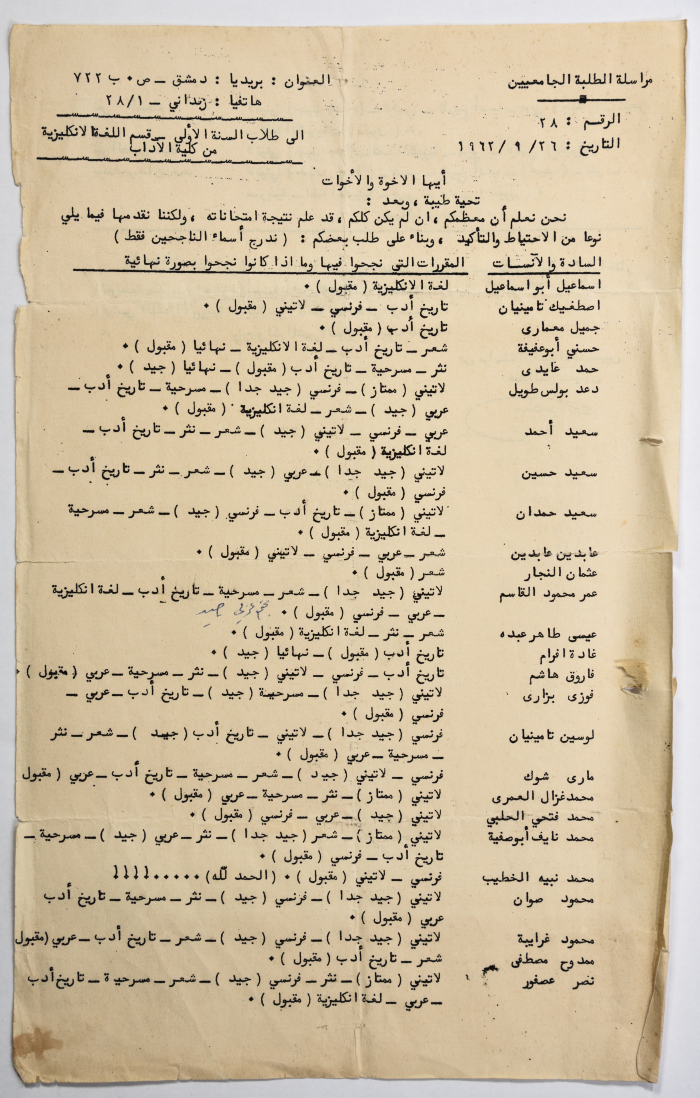 مراسلة الطلبة الجامعيين
العنوان : بريديا : دمشق ـ ص٠ب ٧٢٢
هاتفيا : زبداني ـ ٢٨/١
الرقم : ٢٨
التاريخ : ٢٦/ ٩ /١٩٦٢
الى طلاب السنة الأولى ـ قسم اللغة الانكليزية
من كلية الآداب
أيها الاخوة والأخوات
تحية طيبة ، وبعد :
نحن نعلم أن معظمكم ، ان لم يكن كلكم ، قد علم نتيجة امتحاناته ، ولكننا نقدمها فيما يلي
نوعا من الاحتياط والتأكيد ، وبناء على طلب بعضكم : ( ندرج أسماء الناجحين فقط )
السادة والآنسات المقررات التي نجحوا فيها وما اذا كانوا نجحوا بصورة نهائية
اسماعيل أبو اسماعيل لغة الانكليزية ( مقبول ) ٠
اصطفيك تامينيان تاريخ أدب ـ فرنسي ـ لاتيني ( مقبول ) ٠
جميل معماري تاريخ أدب ( مقبول ) ٠
حسني أبوعفيفة شعر ـ تاريخ أدب ـ لغة الانكليزية ـ نهائيا ( مقبول ) ٠
حمد عايدى نثر ـ مسرحية ـ تاريخ أدب ( مقبول ) ـ نهائيا ( جيد ) ٠
دعد بولس طويل لاتيني ( ممتاز ) ـ فرنسي ( جيد جدا ) ـ مسرحية ـ تاريخ أدب ـ
عربي ( جيد ) ـ شعر ـ لغة انكليزية ( مقبول ) ٠
سعيد أحمد عربي ـ فرنسي ـ لاتيني ( جيد ) ـ شعر ـ نثر ـ تاريخ أدب ـ
لغة انكليزية ( مقبول ) ٠
سعيد حسين لاتيني ( جيد جدا ) ـ عربي ( جيد ) ـ شعر ـ نثر ـ تاريخ أدب ـ
فرنسي ( مقبول ) ٠
سعيد حمدان لاتيني ( ممتاز ) ـ تاريخ أدب ـ فرنسي ( جيد ) ـ شعر ـ مسرحية
ـ لغة انكليزية ( مقبول ) ٠
عابدين عابدين شعر ـ عربي ـ فرنسي ـ لاتيني ( مقبول ) ٠
عثمان النجار شعر ( مقبول ) ٠
عمر محمود القاسم لاتيني ( جيد جدا ) ـ شعر ـ مسرحية ـ تاريخ أدب ـ لغة انكليزية
ـ عربي ـ فرنسي ( مقبول ) ٠
عيسى طاهر عبده شعر ـ نثر ـ لغة انكليزية ( مقبول ) ٠
غادة افرام تاريخ أدب ( مقبول ) ـ نهائيا ( جيد ) ٠
فاروق هاشم تاريخ أدب ـ فرنسي ـ لاتيني ( جيد ) ـ نثر ـ مسرحية ـ عربي ( مقبول ) ٠
فوزى بزارى لاتيني ( جيد جدا ) ـ مسرحية ( جيد ) ـ تاريخ أدب ـ عربي ـ
فرنسي ( مقبول ) ٠
لوسين تامينيان فرنسي ( جيد جدا ) ـ لاتيني ـ تاريخ أدب ( جيد ) ـ شعر ـ نثر
ـ مسرحية ـ عربي ( مقبول ) ٠
مارى شوك فرنسي ـ لاتيني ( جيد ) ـ شعر ـ مسرحية ـ تاريخ أدب ـ عربي ( مقبول
محمد غزال العمرى لاتيني ( ممتاز ) ـ نثر ـ مسرحية ـ عربي ( مقبول ) ٠
محمد فتحي الحلبي لاتيني ( جيد ) ـ عربي ـ فرنسي ( مقبول ) ٠
محمد نايف أبوصفية لاتيني ( ممتاز ) ـ شعر ( جيد جدا ) ـ نثر ـ عربي ( جيد ) ـ مسرحية ـ
تاريخ أدب ـ فرنسي ( مقبول ) ٠
محمد نبيه الخطيب فرنسي ـ لاتيني ( مقبول ) ٠ ( الحمد لله ) ٠٠٠٠٠!!!!
محمود صوان لاتيني ( جيد جدا ) ـ فرنسي ( جيد ) ـ نثر ـ مسرحية ـ تاريخ أدب
عربي ( مقبول ) ٠
محمود غرايبة لاتيني ( جيد جدا ) ـ فرنسي ( جيد ) ـ شعر ـ تاريخ أدب ـ عربي ( مقبول
ممدوح مصطفى شعر ـ تاريخ أدب ( مقبول ) ٠
نصر عصفور لاتيني ( ممتاز ) ـ نثر ـ فرنسي ( جيد ) ـ شعر ـ مسرحية ـ تاريخ أدب
ـ عربي ـ لغة انكليزية ( مقبول ) ٠